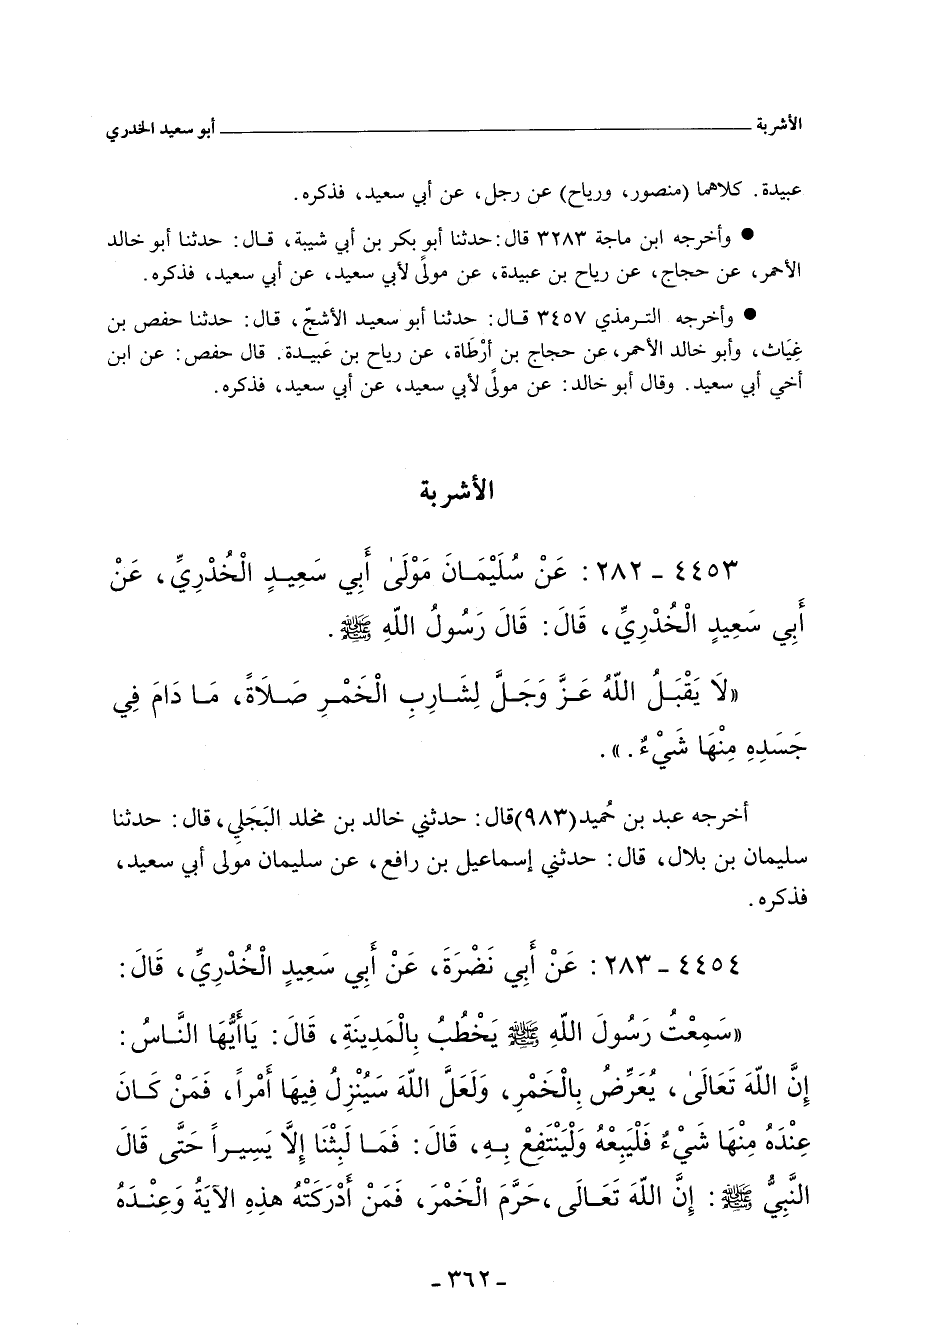 الأشربة ــــــــــــــــــــــــــــــ أبو سعيد الخدري
عبيدة. كلاهما (منصور، ورياح) عن رجل، عن أبي سعيد، فذكره.
● وأخرجه ابن ماجة ٣٢٨٣ قال: حدثنا أبو بكر بن أبي شيبة، قال: حدثنا أبو خالد
الأحمر، عن حجاج، عن رياح بن عبيدة، عن مولًى لأبي سعيد، عن أبي سعيد، فذكره.
● وأخرجه الترمذي ٣٤٥٧ قال: حدثنا أبو سعيد الأشجّ، قال: حدثنا حفص بن
غِيَاث، وأبو خالد الأحمر، عن حجاج بن أرْطَاة، عن رياح بن عَبِيدة. قال حفص: عن ابن
أخي أبي سعيد. وقال أبو خالد: عن مولًى لأبي سعيد، عن أبي سعيد، فذكره.
الأشربة
٤٤٥٣ - ٢٨٢: عَنْ سُلَيْمَانَ مَوْلَىٰ أَبِي سَعِيدٍ الْخُدْرِيِّ، عَنْ
أَبِي سَعِيدٍ الْخُدْرِيِّ، قَالَ: قَالَ رَسُولُ اللّهِ ﷺ.
«لَا يَقْبَلُ اللّهُ عَزَّ وَجَلَّ لِشَارِبِ الْخَمْرِ صَلَاةً، مَا دَامَ فِي
جَسَدِهِ مِنْهَا شَيْءٌ.».
أخرجه عبد بن حُميد(٩٨٣)قال: حدثني خالد بن مخلد البَجَلي، قال: حدثنا
سليمان بن بلال، قال: حدثني إسماعيل بن رافع، عن سليمان مولى أبي سعيد،
فذكره.
٤٤٥٤ - ٢٨٣: عَنْ أَبِي نَضْرَةَ، عَنْ أَبِي سَعِيدٍ الْخُدْرِيِّ، قَالَ:
«سَمِعْتُ رَسُولَ اللّهِ ﷺ يَخْطُبُ بِالْمَدِينَةِ، قَالَ: يَاأَيُّهَا النَّاسُ:
إِنَّ اللّهَ تَعَالَىٰ، يُعَرِّضُ بِالْخَمْرِ، وَلَعَلَّ اللّهَ سَيُنْزِلُ فِيهَا أَمْراً، فَمَنْ كَانَ
عِنْدَهُ مِنْهَا شَيْءٌ فَلْيَبِعْهُ وَلْيَنْتَفِعْ بِهِ، قَالَ: فَمَا لَبِثْنَا إِلَّا يَسِيراً حَتَّى قَالَ
النَّبِيُّ ﷺ: إِنَّ اللّهَ تَعَالَى، حَرَّمَ الْخَمْرَ، فَمَنْ أَدْرَكَتْهُ هذِهِ الآيَةُ وَعِنْدَهُ
- ٣٦٢ -